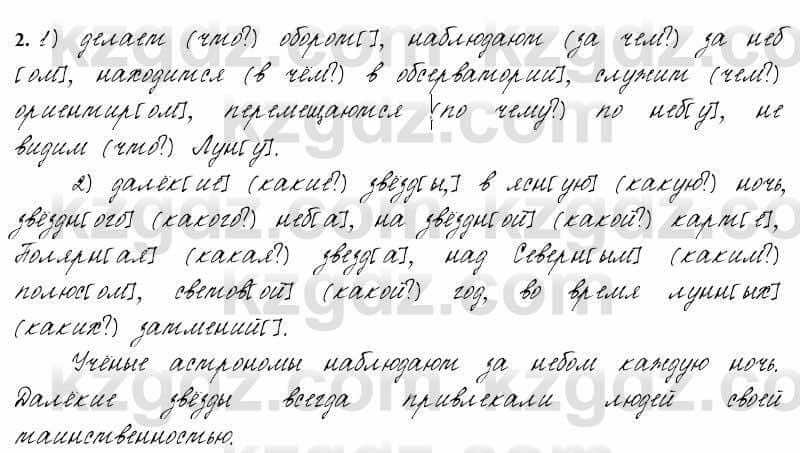 2. 1) делает (что?) оборот[], наблюдают (за чем?) за неб
[ом], находится (в чём?) в обсерватори[и], служит (чем?)
ориентир[ом], перемещаются (по чему?) по неб[у], не
видим (что?) Лун[у].
2) далёк[ие] (какие?) звёзд[ы,] в ясн[ую] (какую?) ночь,
звёздн[ого] (какого?) неб[а], на звёздн[ой] (какой?) карт[е],
Полярн[ая] (какая?) звезд[а], над Северн[ым] (каким?)
полюс[ом], светов[ой] (какой?) год, во время лунн[ых]
(каких?) затмений[].
Учёные астрономы наблюдают за небом каждую ночь.
Далёкие звёзды всегда привлекали людей своей
таинственностью.